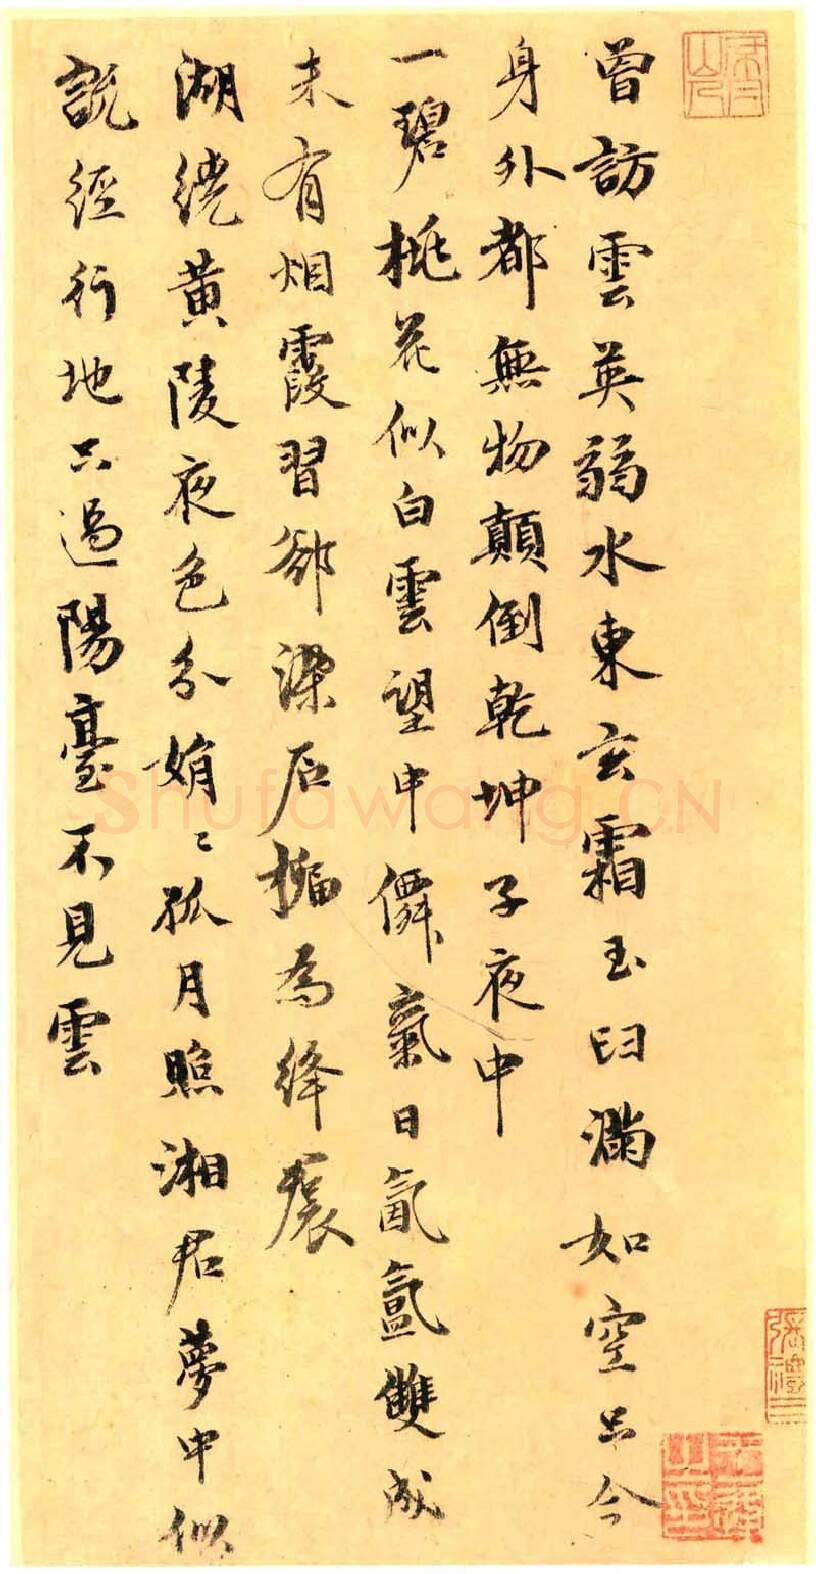 曾訪雲英弱水東玄霜玉臼滿如空只今
身外都無物顛倒乾坤子夜中
一碧桃花似白雲望中僊氣日氤氳雙成
未有烟霞習卻染石榴為絳裠
湖繞黄陵夜色分娟〻孤月照湘君夢中似
説經行地只過陽臺不見雲
Shufawang.CN